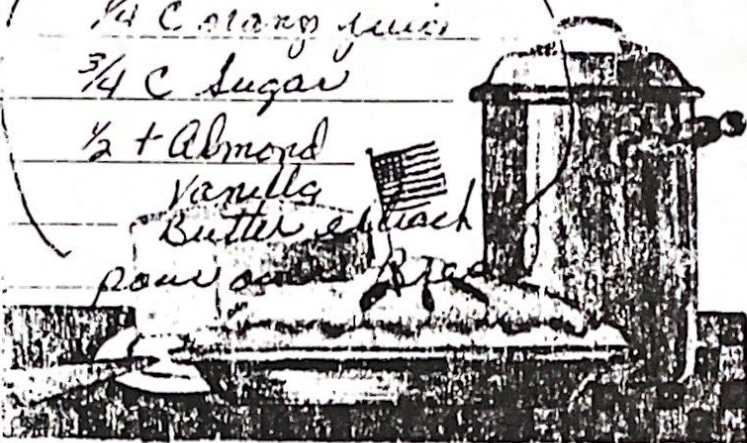 1/4 C orang juice
3/4 C Sugar
1/2 t Almond
Vanilla
Butter extrach
pour over Bread